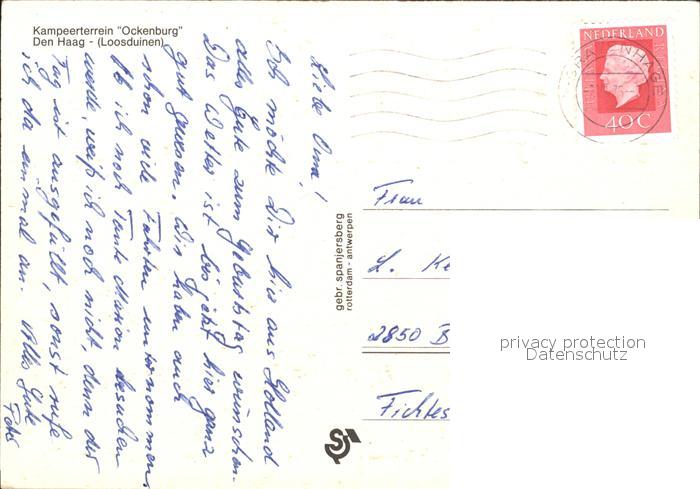 Kampeerterrein "Ockenburg"
Den Haag - (Loosduinen)
Liebe Oma!
Ich möchte Dir hier aus Holland
alles Gute zum Geburtstag wünschen.
Das Wetter ist bis jetzt hier ganz
gut gewesen. Wir haben auch
schon viele Fahrten unternommen.
Ob ich noch Tante Marion besuchen
werde, weiß ich noch nicht, denn der
Tag ist ausgefüllt, sonst rufe
ich da einmal an. Alles Gute
gebr. spanjersberg
rotterdam - antwerpen
NEDERLAND
40 C
Frau
L. Ke
2850 B
Fichtes
privacy protection
Datenschutz